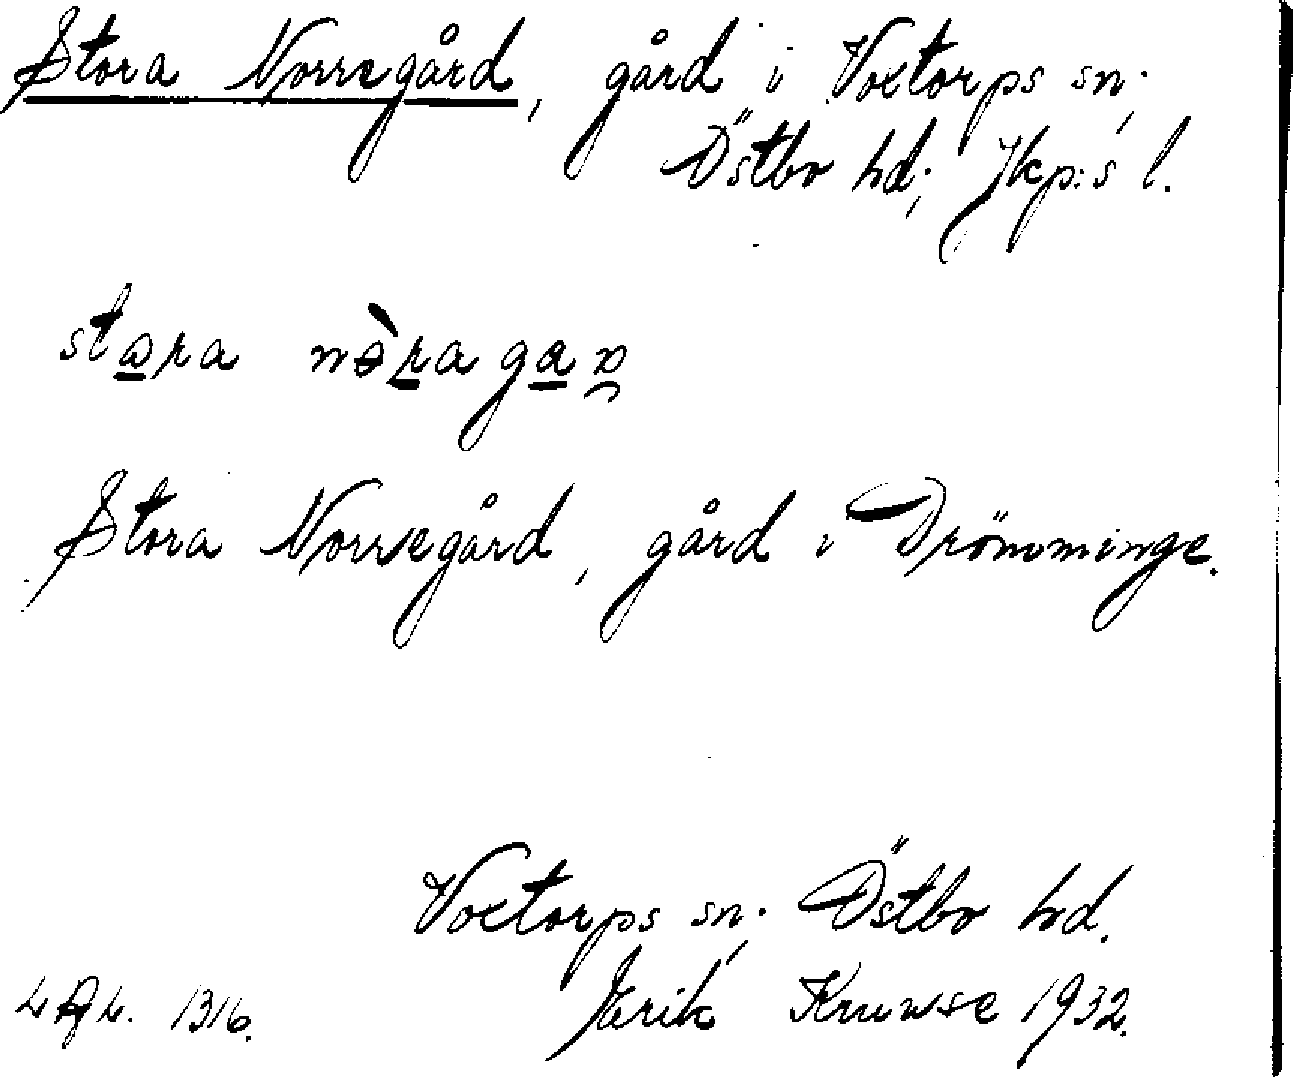 Stora Norregård, gård i Voxtorps sn;
Östbo hd; Jkp:s l.
stora nòraga
Stora Norregård, gård i Drömminge.
Voxtorps sn. Östbo hd.
1316. Erik Kruwse 1932.